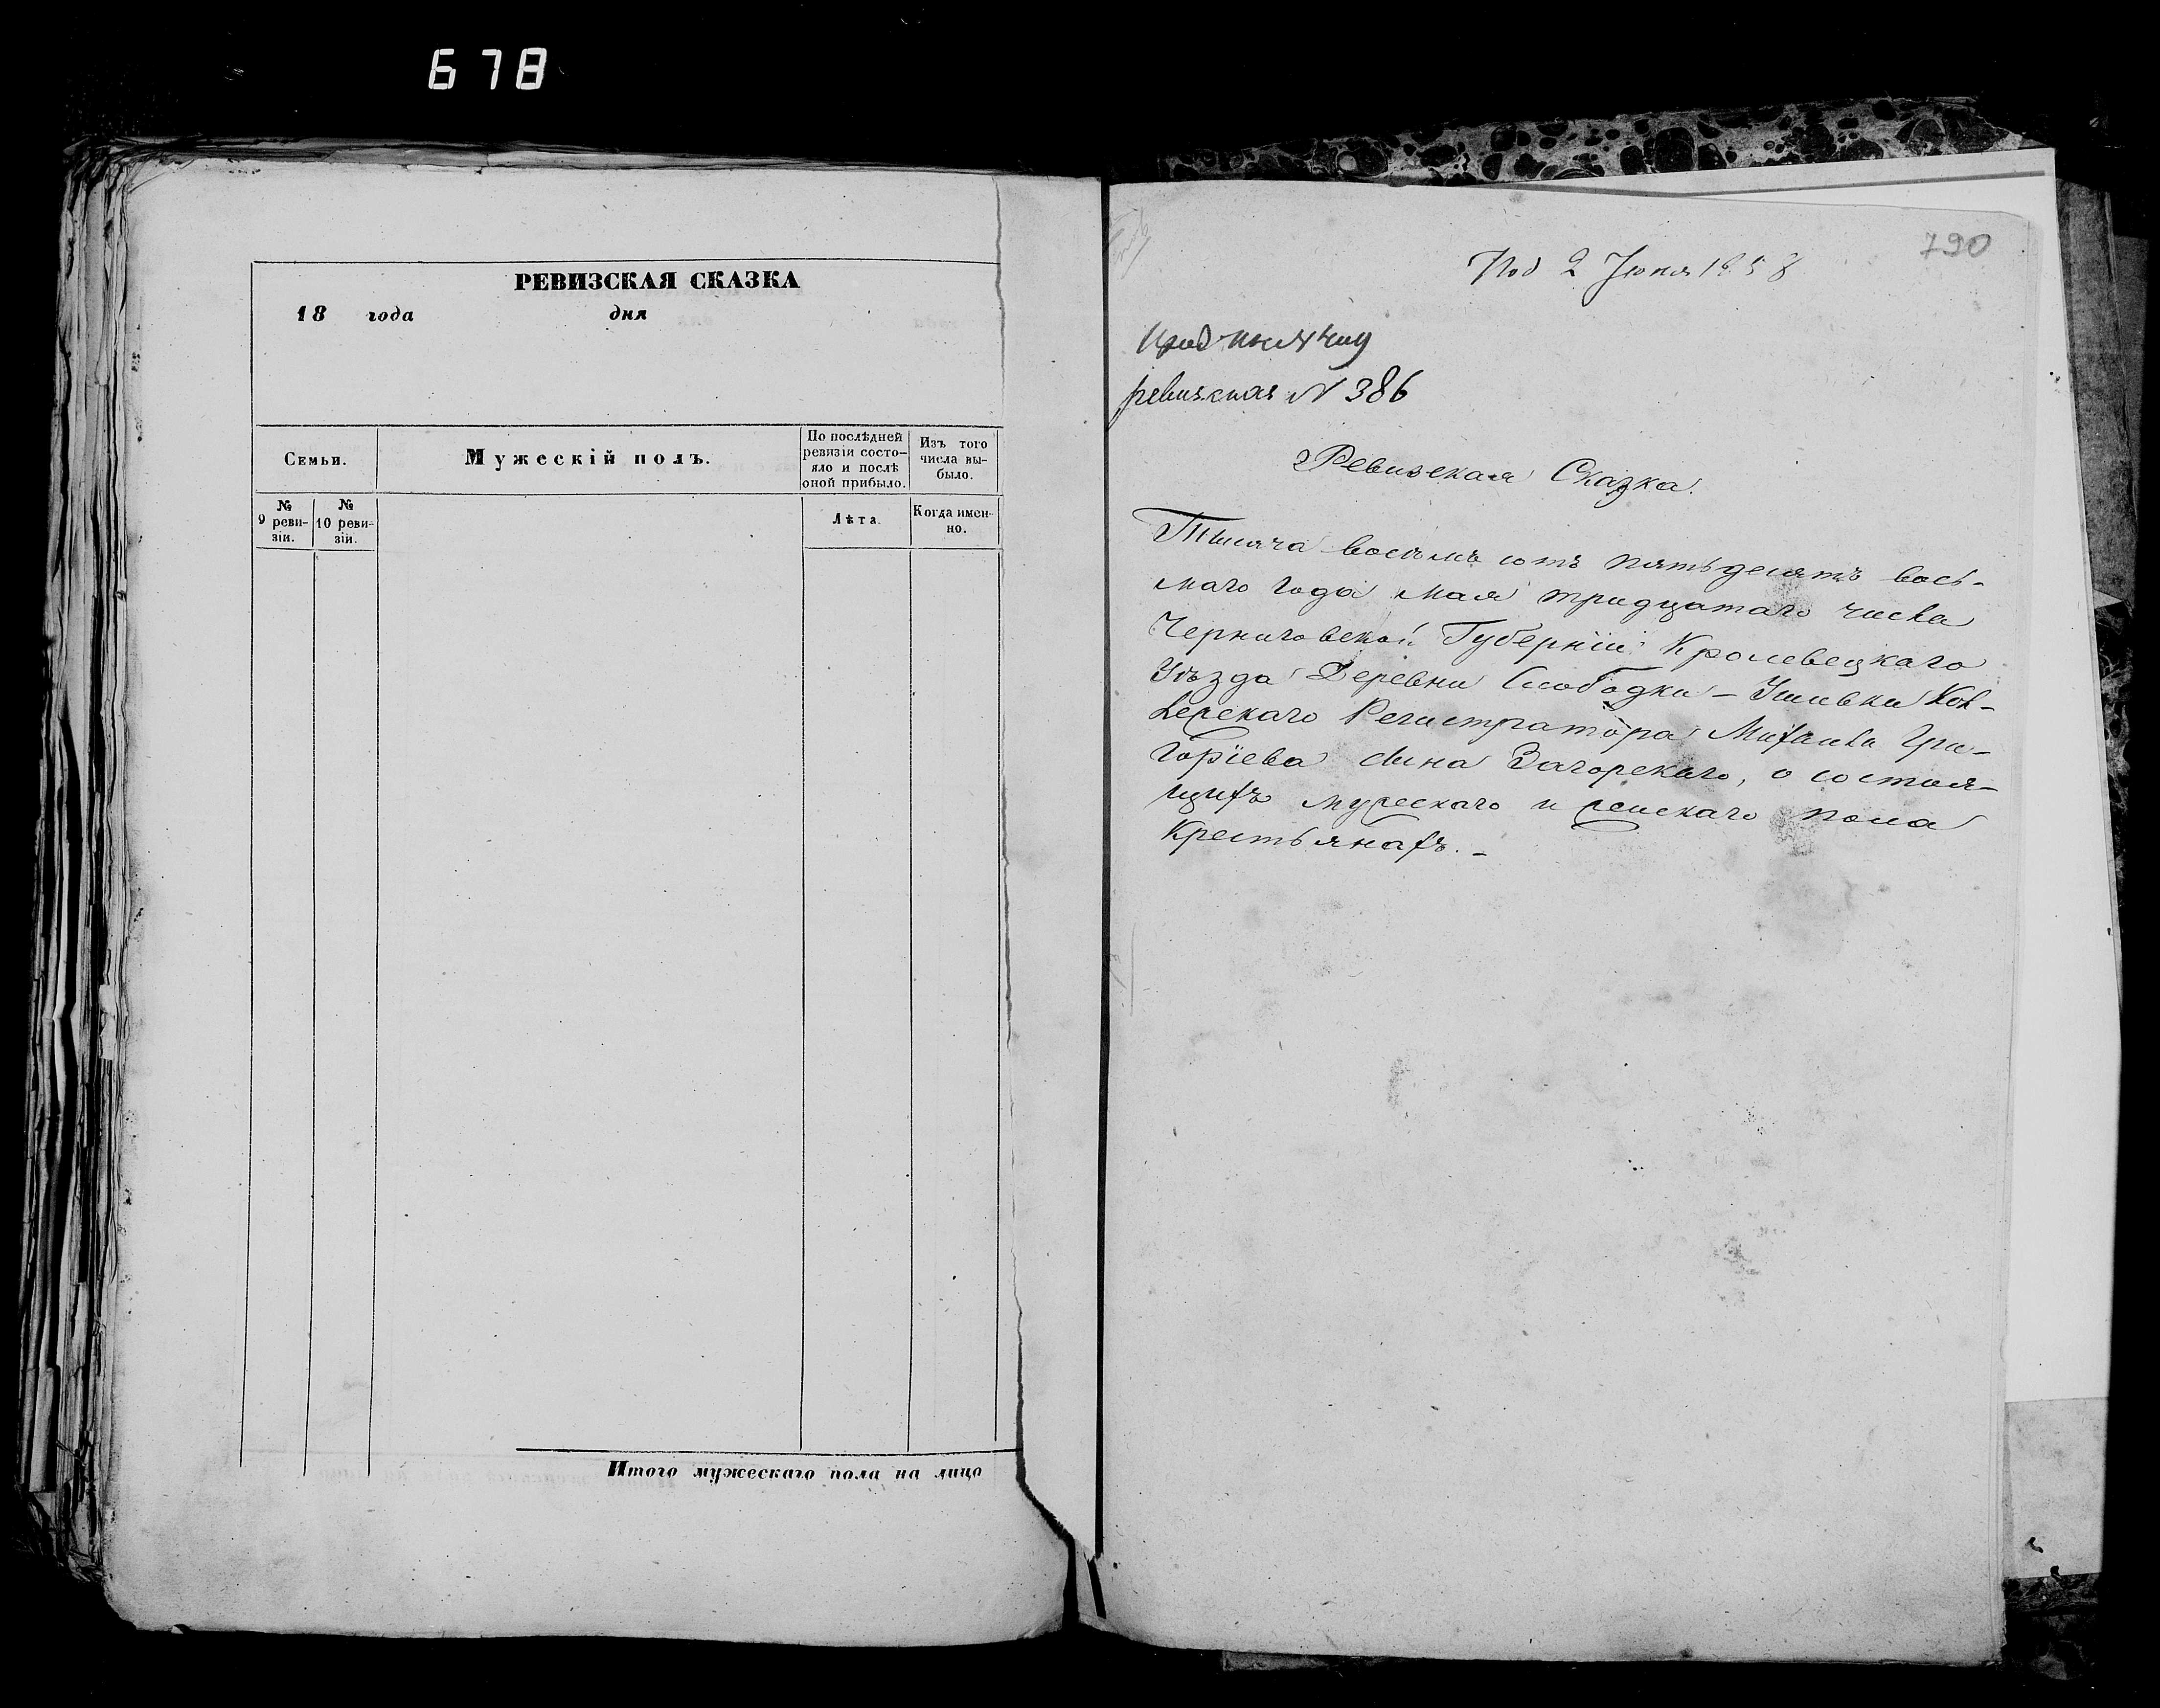 678
РЕВИЗСКАЯ СКАЗКА
18 года дня
Семьи.
Мужескій полъ.
По послѣдней ревизіи состо-
яло и послѣ
оной прибыло.
Изъ того
числа вы-
было.
№
9 реви-
зіи.
№
10 реви-
зіи.
Лѣта.
Когда имен-
но.
Итого мужескаго пола на лицо
790
Под 2 Июня 1858
ревизская N 386
Ревизская Сказка.
Тысяча восемь сотъ пятьдесятъ вось-
маго года мая тридцатаго числа
Черниговской Губерніи Кролевецкаго
Уѣзда Деревни Слободки - Ушивки Кол-
лежскаго Регистратора Михаила Гри-
горіева сына Загорскаго, о состоя-
щихъ мужескаго и женскаго пола
Крестьянахъ. -